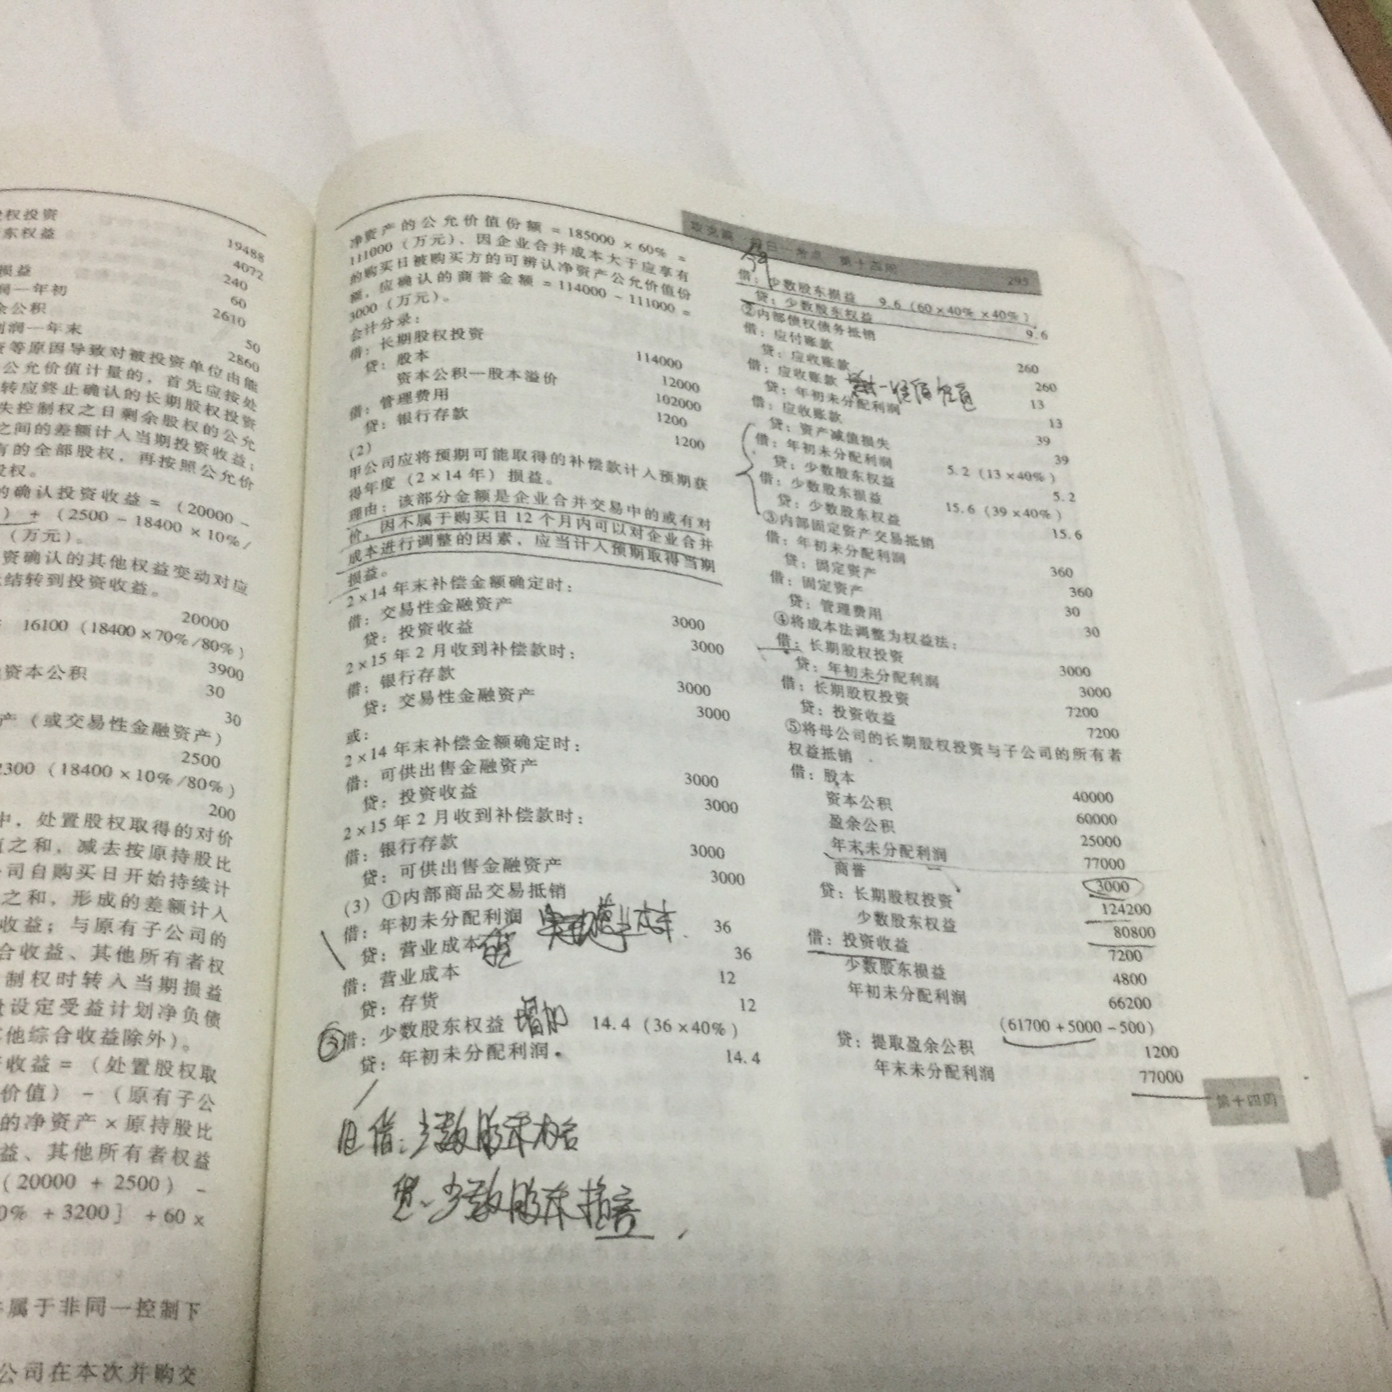 股权投资
19488
东权益
4072
损益
240
润—年初
60
余公积
2610
利润—年末
50
资等原因导致对被投资单位由能
2860
公允价值计量的，首先应按处
转应终止确认的长期股权投资
失控制权之日剩余股权的公允
之间的差额计入当期投资收益；
有的全部股权，再按照公允价
股权。
的确认投资收益 = (20000 -
) + (2500 - 18400 × 10%/
(万元)。
资确认的其他权益变动对应
结转到投资收益。
20000
16100 (18400 × 70%/80%)
3900
资本公积
30
30
产（或交易性金融资产）
2500
2300 (18400 × 10%/80%)
200
中，处置股权取得的对价
值之和，减去按原持股比
公司自购买日开始持续计
之和，形成的差额计入
收益；与原有子公司的
合收益、其他所有者权
制权时转入当期损益
设定受益计划净负债
其他综合收益除外）。
资收益 =（处置股权取
价值）-（原有子公
的净资产 × 原持股比
益、其他所有者权益
(20000 + 2500) -
0% + 3200] + 60 ×
属于非同一控制下
公司在本次并购交
净资产的公允价值份额 = 185000 × 60% =
111000（万元），因企业合并成本大于应享有
的购买日被购买方的可辨认净资产公允价值份
额，应确认的商誉金额 = 114000 - 111000 =
3000（万元）。
会计分录：
借：长期股权投资 114000
贷：股本 12000
资本公积—股本溢价 102000
借：管理费用 1200
贷：银行存款 1200
（2）
甲公司应将预期可能取得的补偿款计入预期获
得年度（2×14 年）损益。
理由：该部分金额是企业合并交易中的或有对
价，因不属于购买日 12 个月内可以对企业合并
成本进行调整的因素，应当计入预期取得当期
损益。
2×14 年末补偿金额确定时：
借：交易性金融资产 3000
贷：投资收益 3000
2×15 年 2 月收到补偿款时：
借：银行存款 3000
贷：交易性金融资产 3000
或：
2×14 年末补偿金额确定时：
借：可供出售金融资产 3000
贷：投资收益 3000
2×15 年 2 月收到补偿款时：
借：银行存款 3000
贷：可供出售金融资产 3000
（3）①内部商品交易抵销
借：年初未分配利润 36
贷：营业成本 36
借：营业成本 12
贷：存货 12
借：少数股东权益 增加 14.4（36×40%）
贷：年初未分配利润 14.4
借：少数股东权益
贷：少数股东损益
每日一考点 第十四周 295
借：少数股东损益 9.6（60×40%×40%）
贷：少数股东权益 9.6
②内部债权债务抵销
借：应付账款 260
贷：应收账款 260
借：应收账款 13
贷：年初未分配利润 13
借：应收账款 39
贷：资产减值损失 39
借：年初未分配利润 5.2（13×40%）
贷：少数股东权益 5.2
借：少数股东损益 15.6（39×40%）
贷：少数股东权益 15.6
③内部固定资产交易抵销
借：年初未分配利润 360
贷：固定资产 360
借：固定资产 30
贷：管理费用 30
④将成本法调整为权益法：
借：长期股权投资 3000
贷：年初未分配利润 3000
借：长期股权投资 7200
贷：投资收益 7200
⑤将母公司的长期股权投资与子公司的所有者
权益抵销
借：股本 40000
资本公积 60000
盈余公积 25000
年末未分配利润 77000
商誉 3000
贷：长期股权投资 124200
少数股东权益 80800
借：投资收益 7200
少数股东损益 4800
年初未分配利润 66200
(61700 + 5000 - 500)
贷：提取盈余公积 1200
年末未分配利润 77000
第十四周